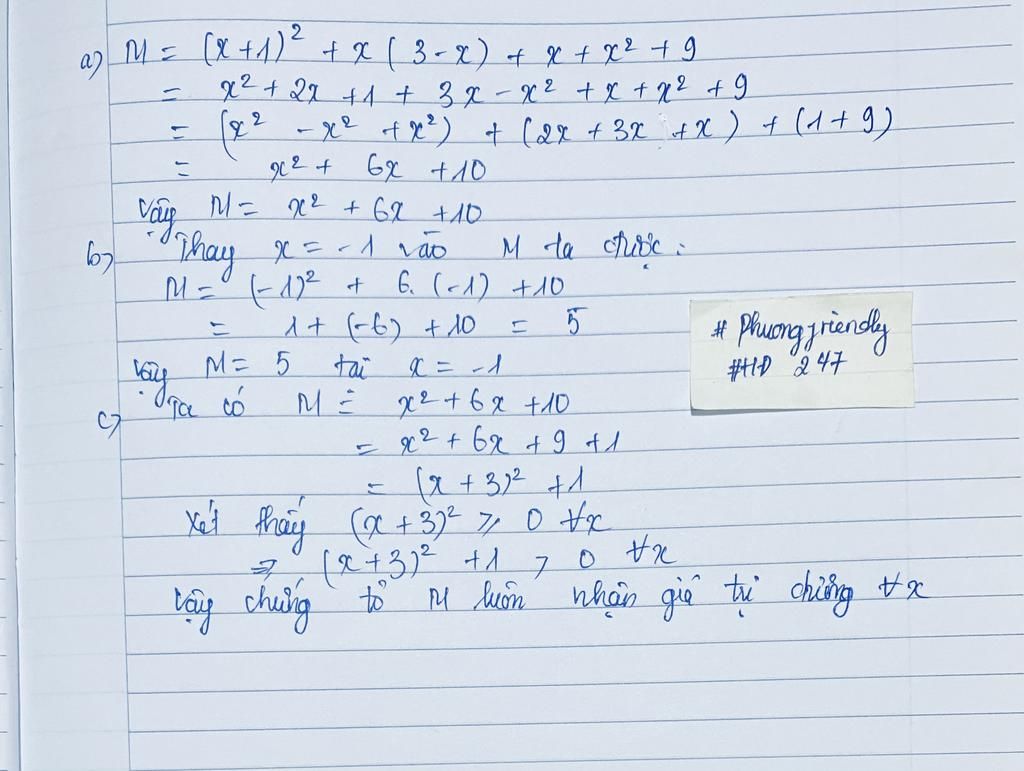 a) M = (x+1)² + x(3-x) + x + x² + 9
= x² + 2x + 1 + 3x - x² + x + x² + 9
= (x² - x² + x²) + (2x + 3x + x) + (1 + 9)
= x² + 6x + 10
Vậy M = x² + 6x + 10
b) Thay x = -1 vào M ta được:
M = (-1)² + 6.(-1) + 10
= 1 + (-6) + 10 = 5
Vậy M = 5 tại x = -1
c) Ta có M = x² + 6x + 10
= x² + 6x + 9 + 1
= (x + 3)² + 1
Xét thấy (x + 3)² ⩾ 0 ∀x
⇒ (x+3)² + 1 > 0 ∀x
Vậy chứng tỏ M luôn nhận giá trị dương ∀x
# Phuongfriendly
#HD 247